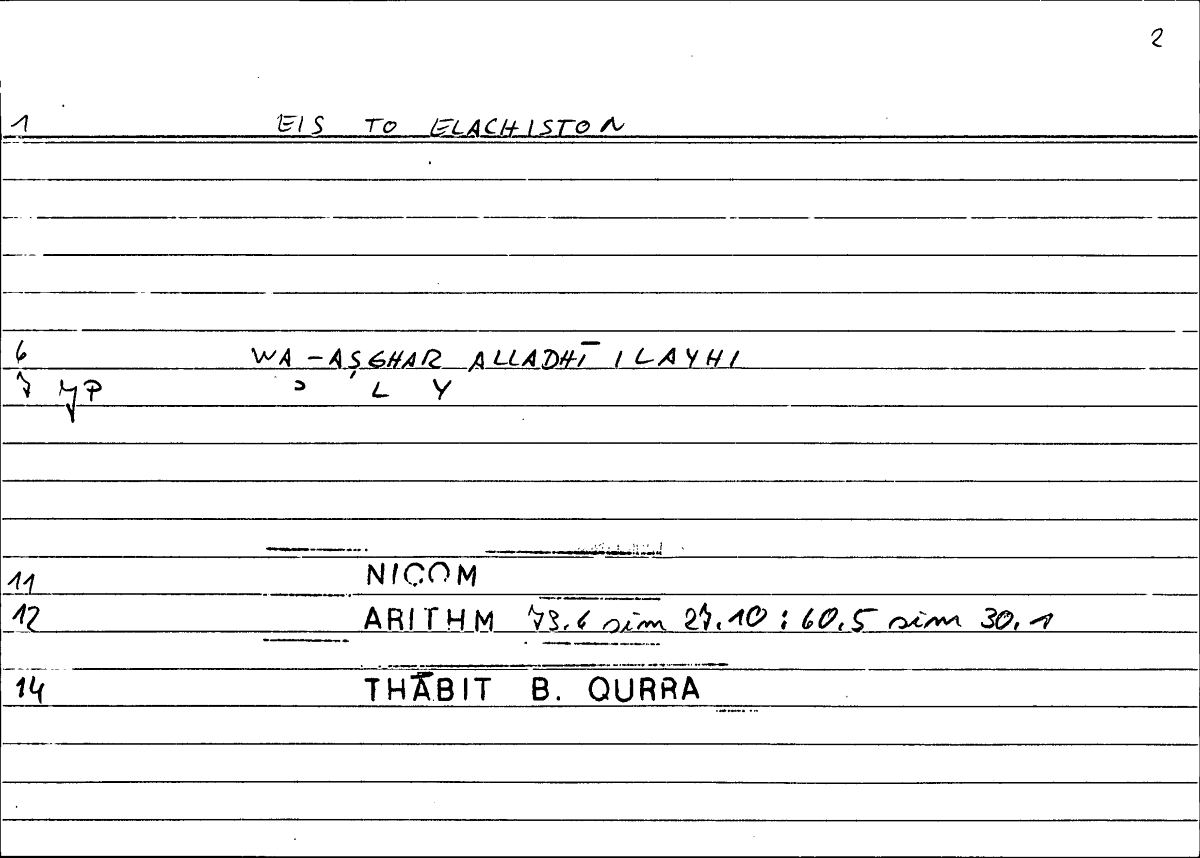 2
1 EIS TO ELACHISTON
6 WA-AṢGHAR ALLADHĪ ILAYHI
7 ʾ L Y
11 NICOM
12 ARITHM 73.6 sim 27.10 : 60.5 sim 30.1
14 THĀBIT B. QURRA